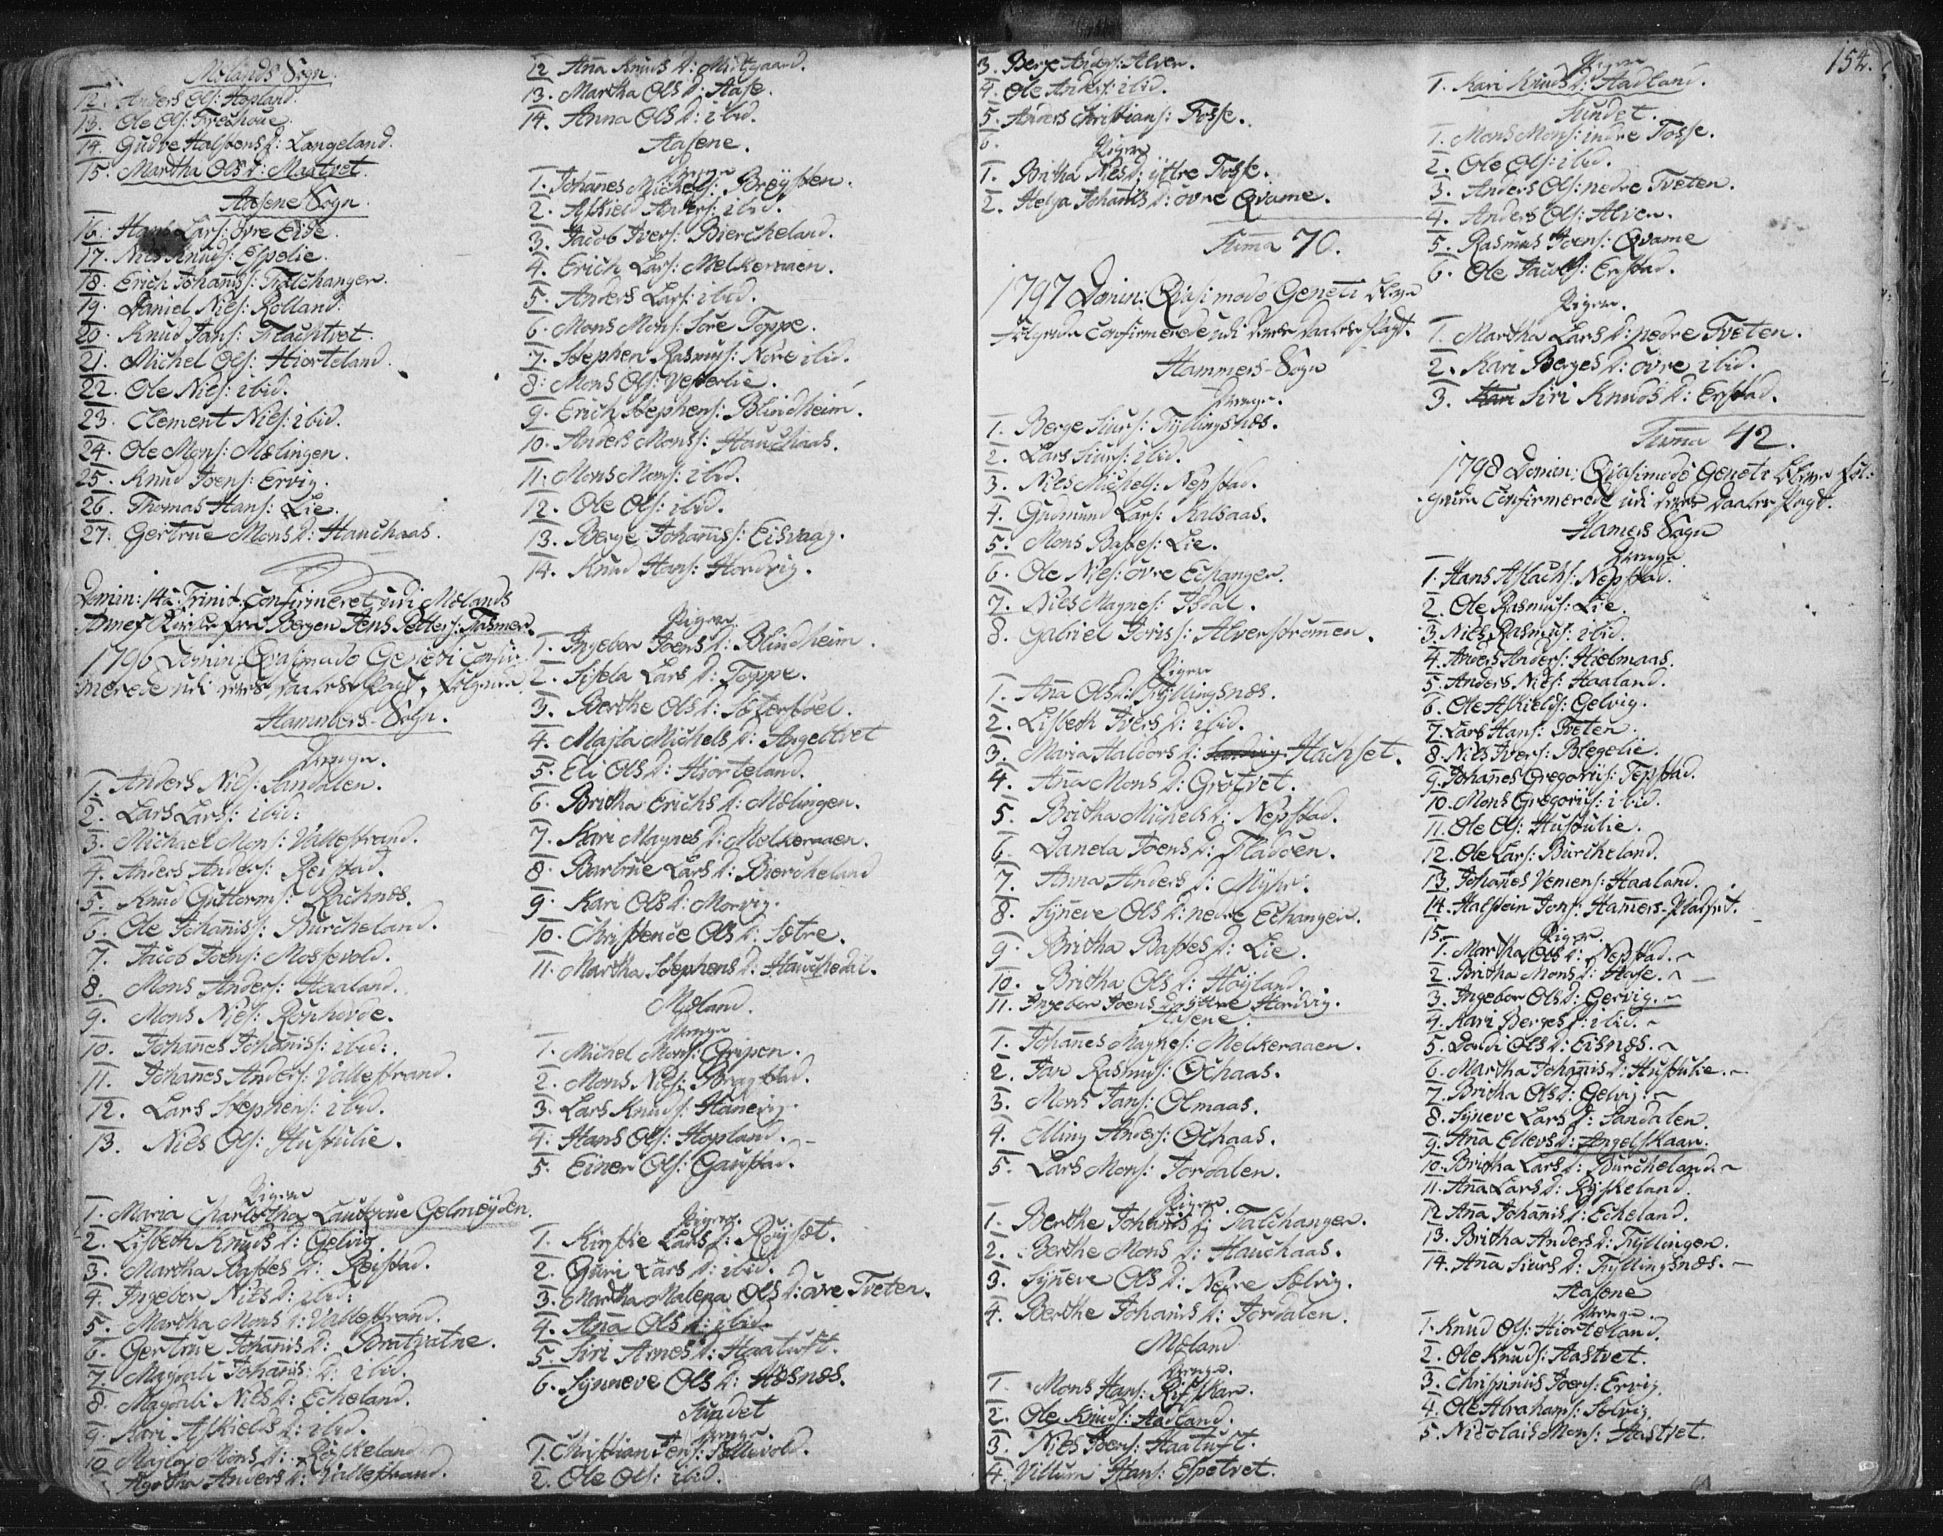 Mølands Sogn.
12. Anders Ols: Hopland.
13. Ole Ols:
14. Gudve Halstens d: Langeland.
15. Martha Ols d: Mastvet.
Aasene Sogn.
16. Hans Lars: øvre Eide.
17. Niels Knuds: Espelie.
18. Erich Johañis:
19. Daniel Niels: Rolland.
20. Knud Jans: Flachtvet.
21. Michel Ols: Hiorteland.
22. Ole Niels: ibid.
23. Clement Niels: ibid.
24. Ole Mons: Mølingen.
25. Knud Joens: Ervig.
26. Thomas Hans: Lie.
27. Gertrue Mons d: Hauchaas.
Domin: 14å: Trinit. Confirmeret udi Mølands
Añex Kirke fra Bergen Jens Petter: Tasmer.
1796 Domin: Quasimodo Geniti Confir-
merede udi deres Daabes Pagt, følgende
Hammers-Sogn.
Drenge.
1. Anders Niels: Sandalen.
2. Lars Lars: ibid:
3. Michael Mons: Vallestrand.
4. Anders Anders: Reistad.
5. Knud Guttorms: Richnøs.
6. Ole Johañis: Burcheland.
7. Jacob Joens: Mossevold.
8. Mons Anders: Haaland.
9. Mons Niels: Rønhovde.
10. Johañes Johañis: ibid:
11. Johañes Anders: Vallestrand.
12. Lars Stephens: ibid.
13. Niels Ols: Hustulie.
Piger
1. Maria Charlotha Gelmøyden.
2. Lisbeth Knuds d: Gelvig.
3. Martha Bastes d: Reistad.
4. Ingebor Niels d: ibid:
5. Martha Mons d: Vallestrand.
6. Gertrue Johañis d: Bratvatne.
7. Magdali Johañis: d: ibid.
8. Magdali Niels d: Echeland.
9. Kari Askields d: ibid.
10. Majla Mons d: Røskeland
Agatha Anders d: Vallestrand.
12. Aña Knuds d: Midtgaard.
13. Martha Ols d: Hase.
14. Anna Ols d: ibid.
Aasene.
Drenge
1. Johañes Michels: Brøysten.
2. Askield Anders: ibid.
3. Jacob Ivers: Biercheland.
4. Erich Lars: Melkeraaen.
5. Anders Lars: ibid.
6. Mons Mons: Søre Toppe.
7. Stephen Rasmus: Nore ibid.
8. Mons Ols: Vesterlie.
9. Erich Stephens: Blindheim.
10. Anders Monss: Hauchaas.
11. Mons Mons: ibid.
12. Ole Ols: ibid.
13. Berge Johañis: Eisvaag.
14. Knud Hans: Hordvig.
Piger
1. Ingebor Joens d: Blindheim.
2. Sisela Lars d: Toppe.
3. Berthe Ols d: Sæterstøel.
4. Majla Michels d: Angeltvet
5. Eli Ols d: Hiorteland.
6. Britha Erichs d: Mølingen.
7. Kari Magnes d: Melkeraaen.
8. Bartrue Lars d: Biercheland
9. Kari Ols d: Morvig.
10. Christence Ols d: Sætre.
11. Martha Stephens d: Hauchedal.
Møland.
Drenge
1. Michel Mons: Gripen.
2. Mons Niels: Bragstad.
3. Lars Knuds: Hanevig.
4. Hans Ols: Hopland.
5. Einer Ols: Gaustad.
Piger.
1. Kirstie Lars d: Røysset.
2. Guri Lars d: ibid.
3. Martha Malena Ols d: øvre Tveten.
4. Aña Ols d: ibid.
5. Siri Arnes d: Haatuft.
6. Synneve Ols d: Høsnøs.
Sundet
Drenge.
1. Christian Jens:
2. Ole Ols: ibid.
3. Berge Anders: Alver.
4. Ole Anders: ibid.
5. Anders Christians: Fosse.
6.
Piger
1. Britha Niels d: yttre Fosse.
2. Helga Johañis d: øvre Qvame.
Suma 70.
1797 Domin: Qvasi modo Geneti bleve
følgende Confirmerede udi deres Daabes Pagt.
Hammers-Sogn
Drenge.
1. Berge Siurs: Tyllingsnøs.
2. Lars Siurs: ibid.
3. Niels Michels: Nepstad.
4. Gudmund Lars: Kalsaas.
5. Mons Bastes: Lie.
6. Ole Niels: øvre Echanger.
7. Niels Magnes: Isdal.
8. Gabriel Joris: Alverstrømmen.
Piger
1. Aña Ols d: Tyllingsnøs.
2. Lisbeth Ivers d: ibid.
3. Maria Haldors d: Hachset.
4. Aña Mons d: Grøtvet.
5. Britha Michels d: Nepstad.
6. Danela Joens d: Fladøen.
7. Anna Anders d: Myhr.
8. Syneve Ols d: nedre Echanger.
9. Britha Bastes d: Lie.
10. Britha Ols d: Høyland.
11. Ingebor Joens d: yttre Hordvig.
Aasene.
1. Johañes Magnes: Melkeraaen.
2. Jan Rasmus: Ochaas.
3. Mons Jans: Olmaas.
4. Elling Anders: Ochaas.
5. Lars Mons: Jordalen.
Piger.
1. Berthe Johañis d: Talchanger.
2. Berthe Mons d: Hauchaas.
3. Syneve Ols d: Nedre Sælvig.
4. Berthe Johañis d: Jordalen.
Møland
Drenge.
1. Mons Hans: Risskar.
2. Ole Knuds: Aadland.
3. Niels Iver: Haatuft.
4. Villum Hans: Espetvet.
154.
Piger
1. Kari Knuds d: Aadland.
Sundet.
1. Mons Mons: indre Fosse.
2. Ole Ols: ibid.
3. Anders Ols: nedre Tveten.
4. Anders Ols: Alver.
5. Rasmus Joens: Qvame
6. Ole Jacobs: Erstad.
Piger.
1. Martha Lars d: nedre Tveten.
2. Kari Berges d: øvre ibid.
3. Kari Siri Knuds d: Erstad.
Suma 42.
1798 Domin: Qvasimodo Geneti bleve føl:
gende Confirmerede udi deres Daabes Pagt.
Hamers Sogn
Drenge
1. Hans Aslachs: Nepstad.
2. Ole Rasmus: Lie.
3. Niels Rasmus: ibid.
4. Anders Anders: Hielmaas.
5. Anders Niels: Haaland.
6. Ole Askields: Gelvig.
7. Lars Hans: Tveten.
8. Niels Ivers: Blegelie.
9. Johañes Gregorius: Tepstad.
10. Mons Gregorius: ibid.
11. Ole Ols: Hustulie.
12. Ole Lars: Burcheland.
13. Johañes Vemens: Haaland.
14. Halstein Jons: Hamers-Pladset.
15.
Piger.
1. Martha Ols d: Nepstad.
2. Britha Mons d: Hase.
3. Ingebor Ols d: Gervig.
4. Kari Berges d: ibid.
5. Dordi Ols d: Eisnøs.
6. Martha Johañis d: Hustulie.
7. Britha Ols d: Gelvig.
8. Syneve Lars d: Sandalen.
9. Aña Ellevs d: Angelskaar.
10. Britha Lars d: Burcheland.
11. Aña Lars d: Røskeland.
12. Aña Johañis d: Echeland.
13. Britha Anders d: Tyllingen.
14. Aña Siurs d: Tyllingsnøs.
Aasene
Drenge.
1. Knud Ols: Hiorteland.
2. Ole Knuds: Aastvet.
3. Chrispinus Joens: Ervig.
4. Ole Abrahams: Sælvig.
5. Nicolais Mons: Aastvet.